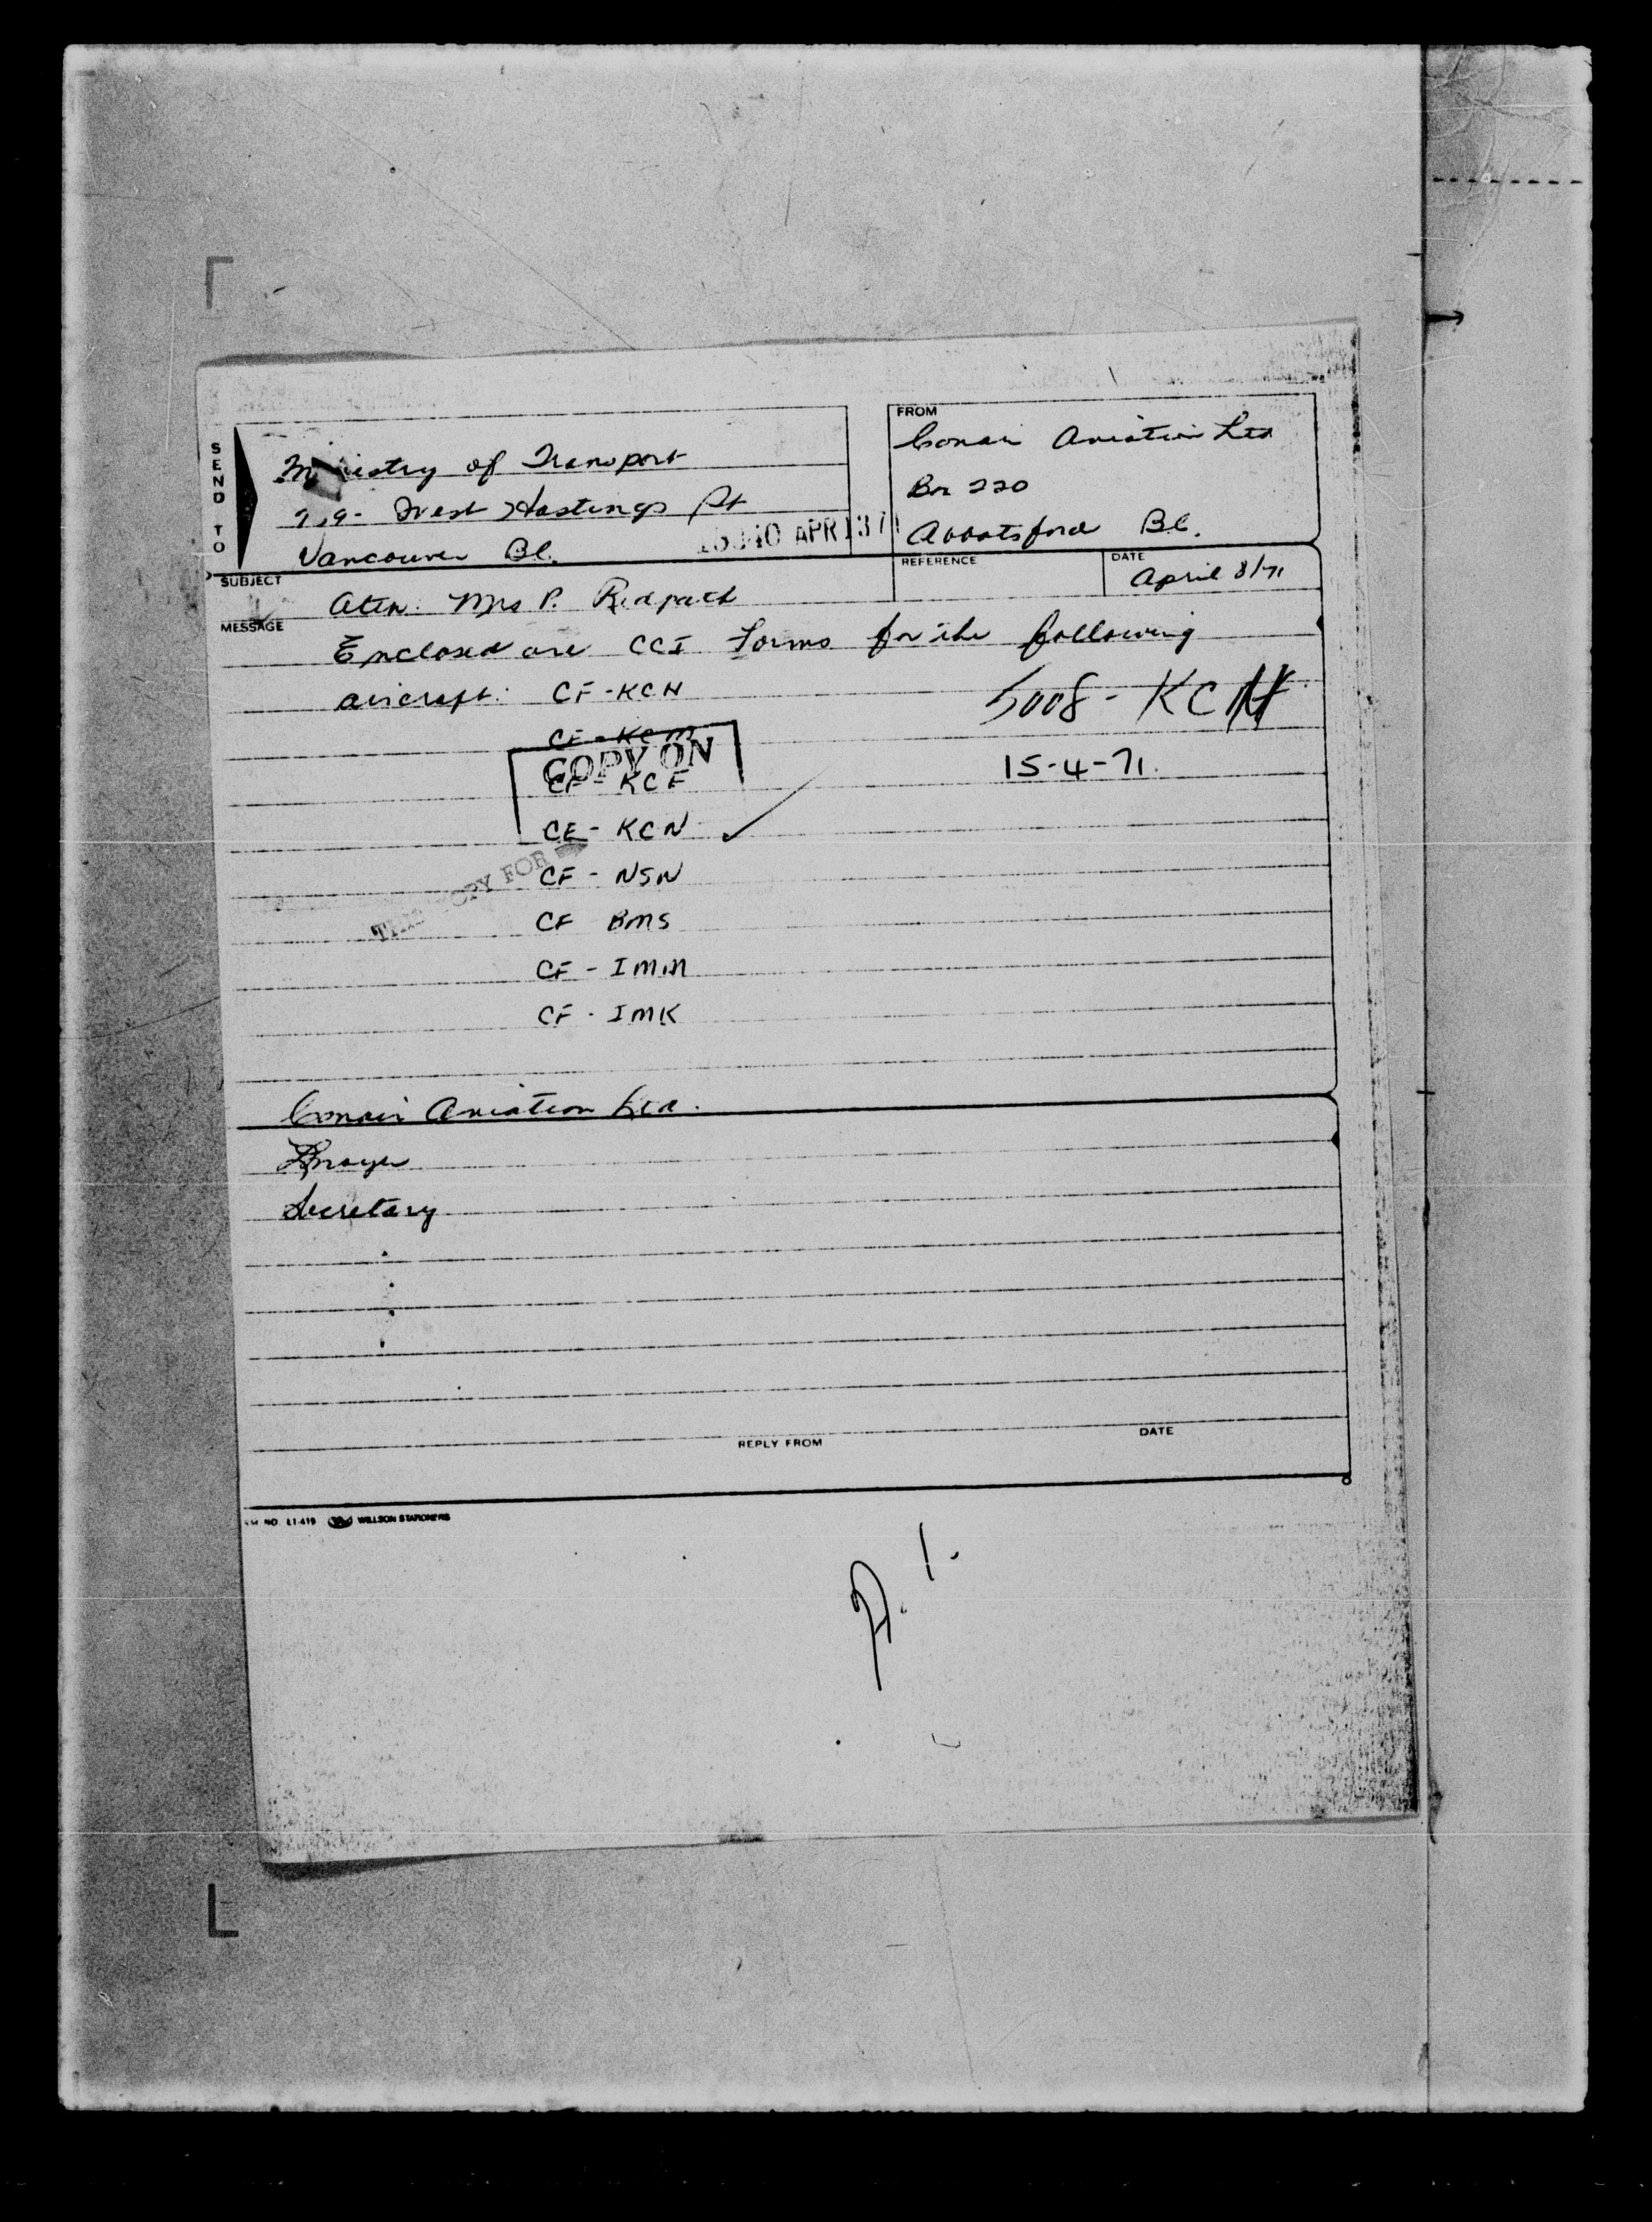 SEND TO
Ministry of Transport
West Hastings St
Vancouver BC.
APR 13 71
FROM
Conair Aviation Ltd
Box 220
Abbotsford BC.
REFERENCE
DATE
April 8/71
SUBJECT
Attn: Mrs P. Redpath
MESSAGE
Enclosed are CCI forms for the following
aircraft: CF-KCH
5008 - KCN
CF-KCM
COPY ON
CF-KCF
15-4-71.
CF - KCN ✓
COPY FOR
CF - NSN
CF BMS
CF - IMM
CF - IMK
Conair Aviation Ltd.
Secretary
REPLY FROM
DATE
NO. L1-419 WILLSON STATIONERS